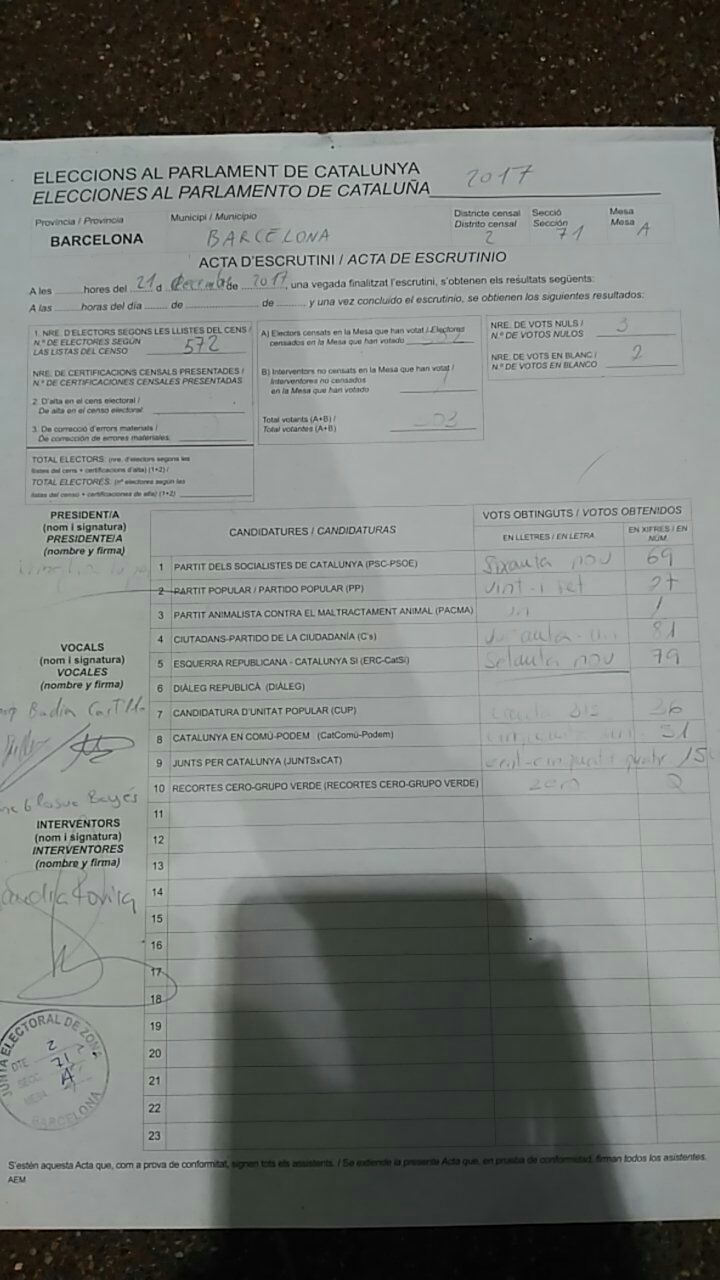 ELECCIONS AL PARLAMENT DE CATALUNYA
ELECCIONES AL PARLAMENTO DE CATALUÑA 2017
Província / Provincia
BARCELONA
Municipi / Municipio
BARCELONA
Districte censal
Distrito censal
2
Secció
Sección
71
Mesa
Mesa
A
ACTA D'ESCRUTINI / ACTA DE ESCRUTINIO
A les ........ hores del 21 d ........ de 2017, una vegada finalitzat l'escrutini, s'obtenen els resultats següents:
A las ........ horas del día ........ de ........ de ........ y una vez concluido el escrutinio, se obtienen los siguientes resultados:
1. NRE. D'ELECTORS SEGONS LES LLISTES DEL CENS /
N.º DE ELECTORES SEGÚN
LAS LISTAS DEL CENSO 572
NRE. DE CERTIFICACIONS CENSALS PRESENTADES /
N.º DE CERTIFICACIONES CENSALES PRESENTADAS
2. D'alta en el cens electoral /
De alta en el censo electoral:
3. De correcció d'errors materials /
De corrección de errores materiales:
TOTAL ELECTORS: (nre. d'electors segons les
llistes del cens + certificacions d'alta) (1+2) /
TOTAL ELECTORES: (nº electores según las
listas del censo + certificaciones de alta) (1+2)
A) Electors censats en la Mesa que han votat / Electores
censados en la Mesa que han votado
B) Interventors no censats en la Mesa que han votat /
Interventores no censados
en la Mesa que han votado
Total votants (A+B) /
Total votantes (A+B)
NRE. DE VOTS NULS /
N.º DE VOTOS NULOS 3
NRE. DE VOTS EN BLANC /
N.º DE VOTOS EN BLANCO 2
PRESIDENT/A
(nom i signatura)
PRESIDENTE/A
(nombre y firma)
VOCALS
(nom i signatura)
VOCALES
(nombre y firma)
Badia Castillo
INTERVENTORS
(nom i signatura)
INTERVENTORES
(nombre y firma)
Rovira
CANDIDATURES / CANDIDATURAS
VOTS OBTINGUTS / VOTOS OBTENIDOS
EN LLETRES / EN LETRA
EN XIFRES / EN NÚM.
1 PARTIT DELS SOCIALISTES DE CATALUNYA (PSC-PSOE) Sixanta nou 69
2 PARTIT POPULAR / PARTIDO POPULAR (PP) vint-i set 27
3 PARTIT ANIMALISTA CONTRA EL MALTRACTAMENT ANIMAL (PACMA) 1
4 CIUTADANS-PARTIDO DE LA CIUDADANÍA (C's) 81
5 ESQUERRA REPUBLICANA - CATALUNYA SÍ (ERC-CatSí) Setanta nou 79
6 DIÀLEG REPUBLICÀ (DIÀLEG)
7 CANDIDATURA D'UNITAT POPULAR (CUP) 36
8 CATALUNYA EN COMÚ-PODEM (CatComú-Podem) 51
9 JUNTS PER CATALUNYA (JUNTSxCAT)
10 RECORTES CERO-GRUPO VERDE (RECORTES CERO-GRUPO VERDE) zero 0
11
12
13
14
15
16
17
18
19
20
21
22
23
JUNTA ELECTORAL DE ZONA
DTE. 2
SECC. 71
MESA A
BARCELONA
S'estén aquesta Acta que, com a prova de conformitat, signen tots els assistents. / Se extiende la presente Acta que, en prueba de conformidad, firman todos los asistentes.
AEM